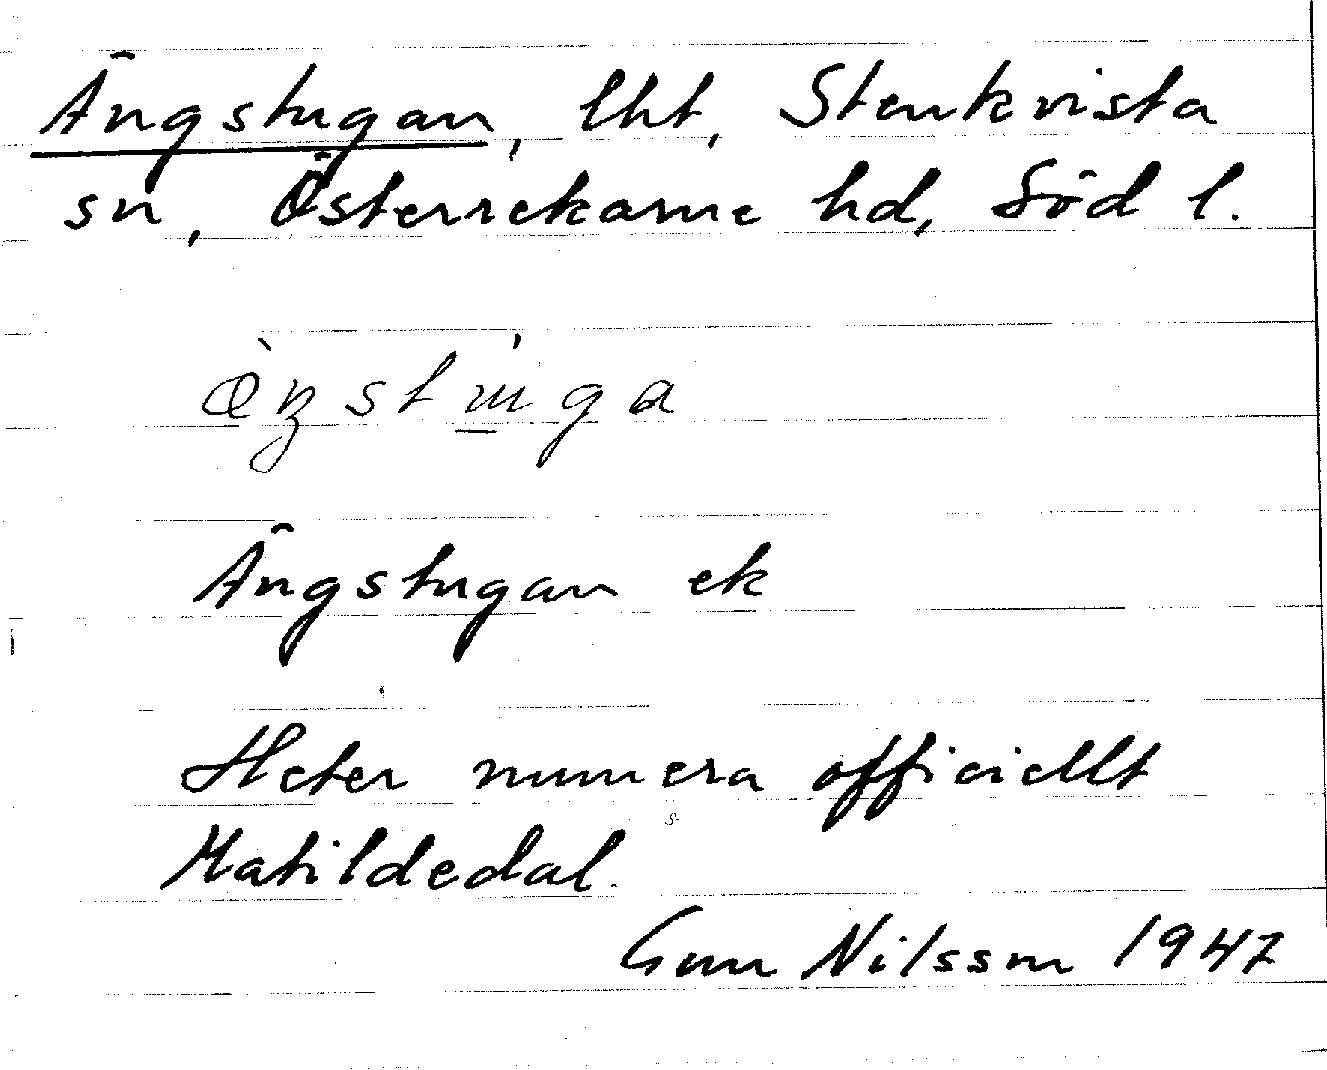 Ängstugan, lht, Stenkvista
sn, Österrekarne hd, Söd l.
Ängstugan ek
Heter numera officiellt
Matildedal.
Gun Nilsson 1947